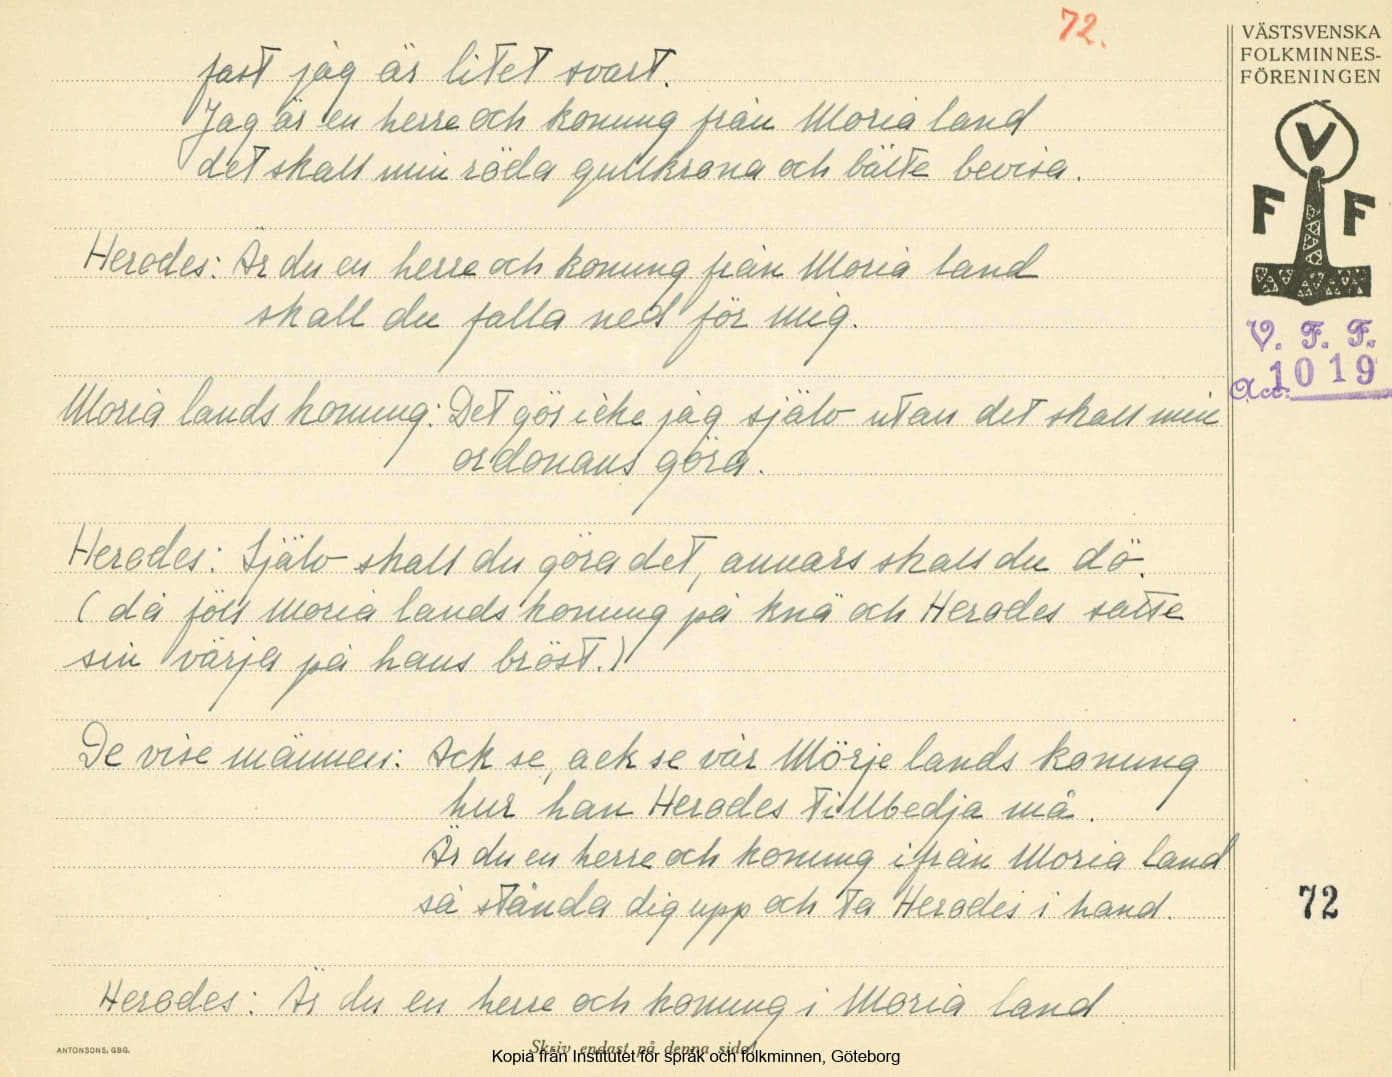 72.
fast jag är litet svart.
Jag är en herre och konung från Moria land
det skall min röda gullkrona och bälte bevisa.
Herodes: Är du en herre och konung från Moria land
skall du falla ned för mig.
Moria lands konung: Det gör icke jag själv utan det skall min
ordonans göra.
Herodes: Själv skall du göra det, annars skall du dö.
(då föll Moria lands konung på knä och Herodes satte
sin värja på hans bröst.)
De vise männen: Ack se, ack se vår Mörje lands konung
hur han Herodes tillbedja må.
Är du en herre och konung ifrån Moria land
så stånda dig upp och ta Herodes i hand.
Herodes: Är du en herre och konung i Moria land
VÄSTSVENSKA
FOLKMINNES-
FÖRENINGEN
V
F F
V. F. F.
Acc. 1019
72
ANTONSONS, GBG.
Skriv endast på denna sida!
Kopia från Institutet för språk och folkminnen, Göteborg